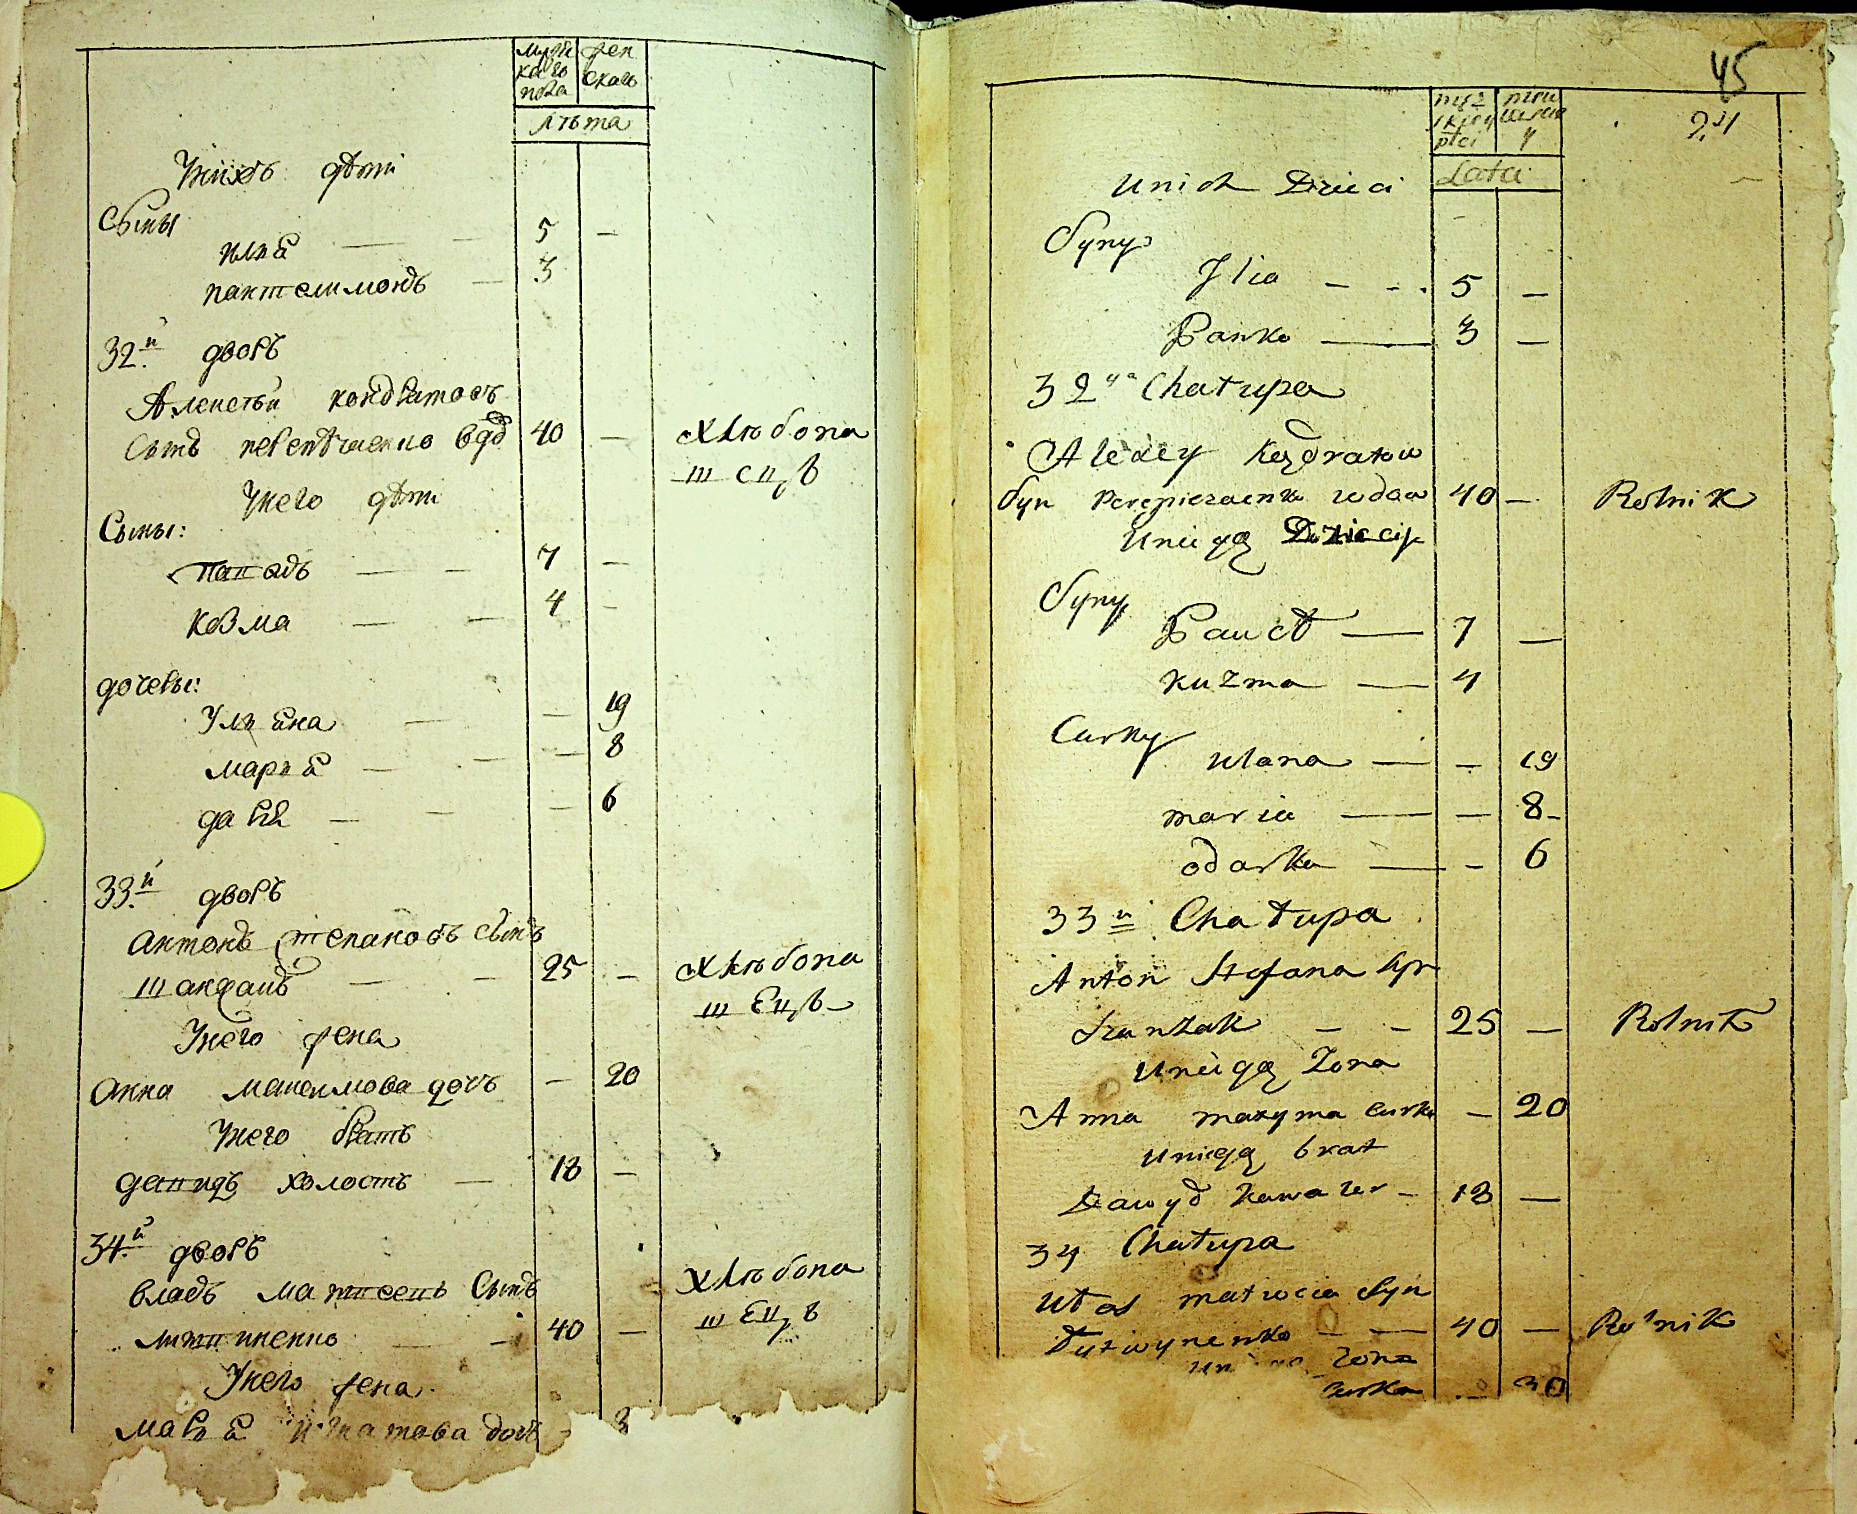 мужи женкаго скаго
пола
лѣта
Унихъ дѣти
Сыны
илья — — 5 —
пантелимонъ — 3
32.й дворъ
Алексѣй кондратовъ
Сынъ перепѣченко вдв 40 — хлѣбопа
шецъ
Унего дѣти
Сыны:
павелъ — — 7 —
козма — — 4 —
дочеры:
Ульяна — — 19
марья — — — 8
дарья — — — 6
33.й дворъ
Антонъ степановъ сынъ
шанжаиъ — — 25 — хлѣбопа
шецъ
Унего жена
Анна максимова дочъ — 20
Унего братъ
давидъ холостъ — 18 —
34.й дворъ
власъ матвеевъ Сынъ хлѣбопа
литвиненко — 40 — шецъ
Унего жена
марья игнатова дочъ
45
Lata
Unich Dzieci
Syny
Jlia — - . 5 —
Panko — 3 —
32 Chatupa
Alexey Kondratow
Syn Perepieczaenko wdow 40 — Rolnik
Uniego Dzieci
Syny
Pauet — 7 —
kuzma — 4
Curky
ulana — — 19
maria — — 8 -
odarka — - 6
33 Chatupa
Anton Stefana Syn
Szanzak — — 25 — Rolnik
Uniego Zona
Anna maxyma curka — 20
Uniego brat
Dawyd Kawaler — 18 —
34 Chatupa
Wtas matwieia Syn
Lytwynenko — — 40 — Rolnik
Zona
curka — 30